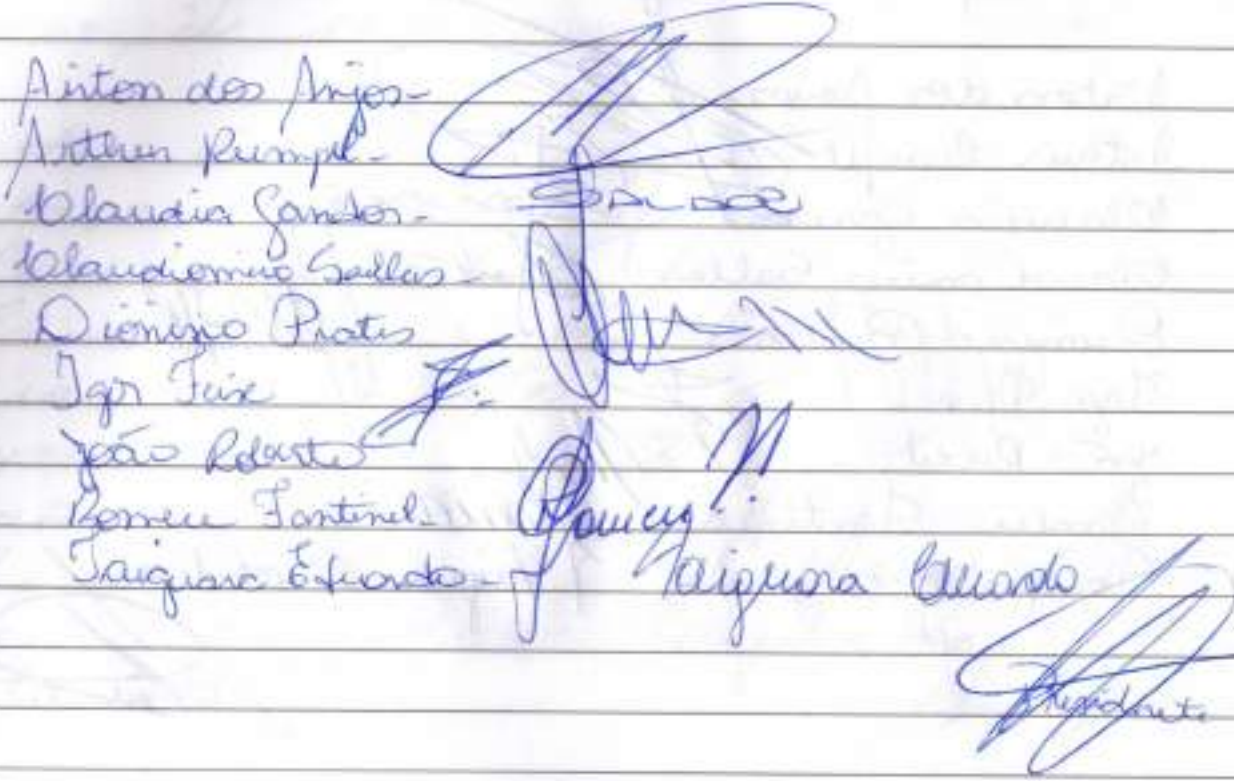 Airton dos Anjos-
Arthur Rumpel-
Claudia Sandor-
Claudiomiro Sallas-
Dionizio Prates
Igor
João Roberto
Romeu Fantinel-
Taiguara Eduardo- Taiguara Eduardo
Presidente